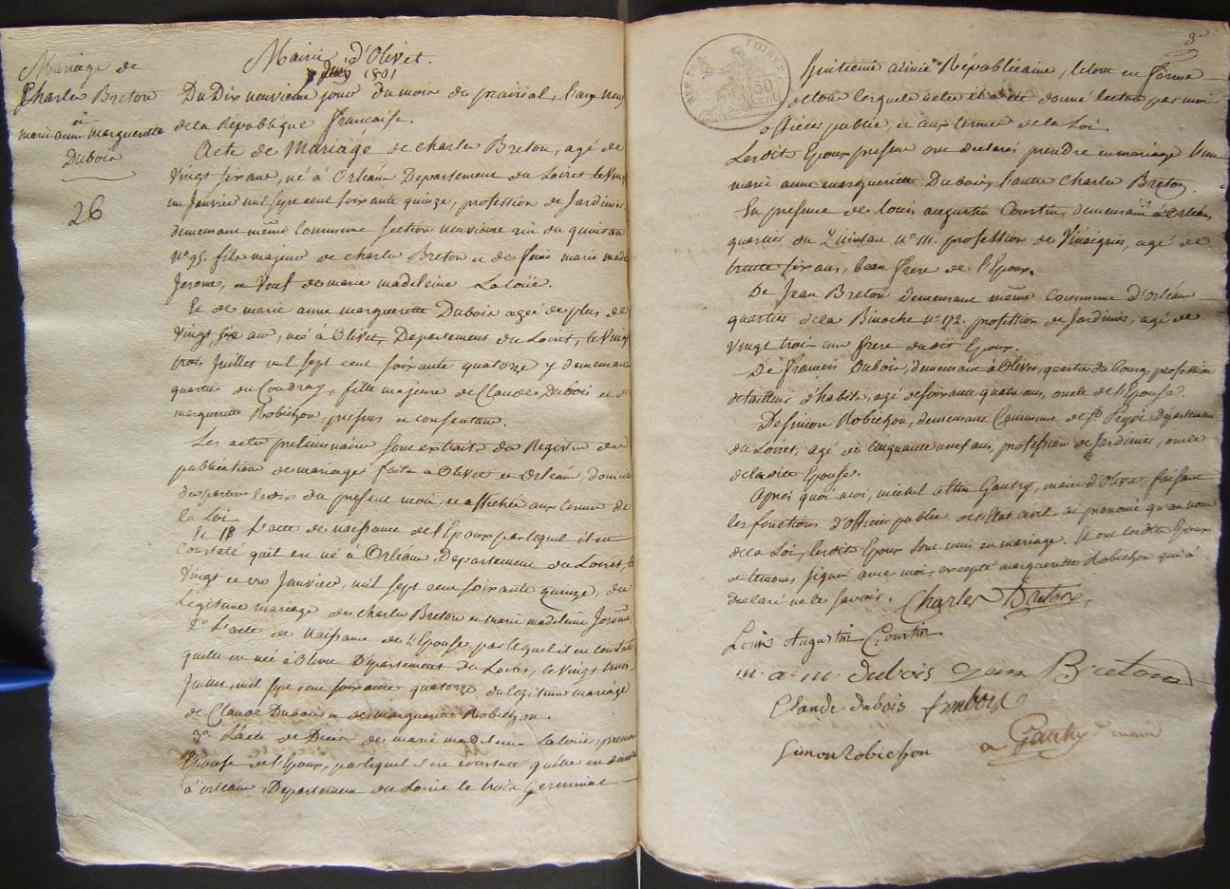 Mairie d'Olivet.
juin 1801
Mariage de
Charles Breton
à
marie anne Marguerite
Dubois
26
Du Dix neuvieme jour du mois de prairial, l'an neuf
de la République française.
Acte de Mariage de charles Breton, agé de
Vingt six ans, né à Orléans Departement du Loiret le Vingt
un Janvier mil sept cent soixante quinze, profession de Jardinier
demeurant même Commune section neuvieme rue du quinteau
N° 95. fils majeur de charles Breton et de marie made
Jerome, et Veuf de marie madeleine Laloüe.
Et de marie anne marguerite Dubois agée de plus de
Vingt six ans, née à Olivet, Departement du Loiret, le Vingt
trois Juillet mil sept cent soixante quatorze y demeurant
quartier du Coudray, fille majeure de Claude Dubois et de
marguerite Robichon, presens et consentans.
Les actes preliminaires sont extraits des Registres des
publications de mariages faites à Olivet et Orléans,
du present mois, et affichées aux termes de
la Loi
1° L'acte de naissance de l'Epoux par lequel il est
Constaté qu'il est né à Orléans, Departement du Loiret, le
Vingt et un Janvier, mil sept cent soixante quinze, du
Legitime mariage de charles Breton et marie madeleine Jerome
2° L'acte de Naissance de l'Epouse par lequel il est constaté
qu'elle est née à Olivet Departement du Loiret, le Vingt trois
Juillet, mil sept cent soixante quatorze du legitime mariage
de Claude Dubois et de marguerite Robichon.
3° L'acte de Deces de marie madeleine Laloüe, premiere
Epouse de l'Epoux, par lequel il est constaté qu'elle est decedée
à orléans, Departement du Loiret le trois Germinal
3e
50
huitieme année Républicaine, le tout en forme
de tous lesquels actes il a été donné lecture par moi
officier public, et aux termes de la Loi.
Lesdits Epoux presens ont declarés prendre en mariage l'une
marie anne marguerite Dubois, l'autre Charles Breton.
En presence de Louis augustin Courtin, demeurant à Orléans,
quartier du Quinteau N° 111. profession de Vinaigrier, agé de
trente six ans, beau frere de l'Epoux.
De Jean Breton demeurant même Commune d'Orléans
quartier de la Binoche N° 172. profession de Jardinier, agé de
Vingt trois ans frere dudit Epoux.
De francois Dubois, demeurant à Olivet, quartier du bourg, profession
de tailleur d'habits, agé de soixante quatre ans, oncle de l'Epouse.
De simon Robichon, demeurant Commune de St Departement
du Loiret, agé de cinquante neuf ans, profession de Jardinier, oncle
de ladite Epouse.
Après quoi moi, michel Gautry, maire d'Olivet faisant
les fonctions d'officier public de l'état civil ai prononcé qu'au nom
de la Loi, lesdits Epoux sont unis en mariage. Et ont lesdits Epoux
et temoins signé avec moi, excepté marguerite Robichon qui a
declaré ne le savoir. Charles Breton
Louis Augustin Courtin
m. a. m. dubois jean Breton
Claude dubois f. duboys
Gautry maire
Simon Robichon